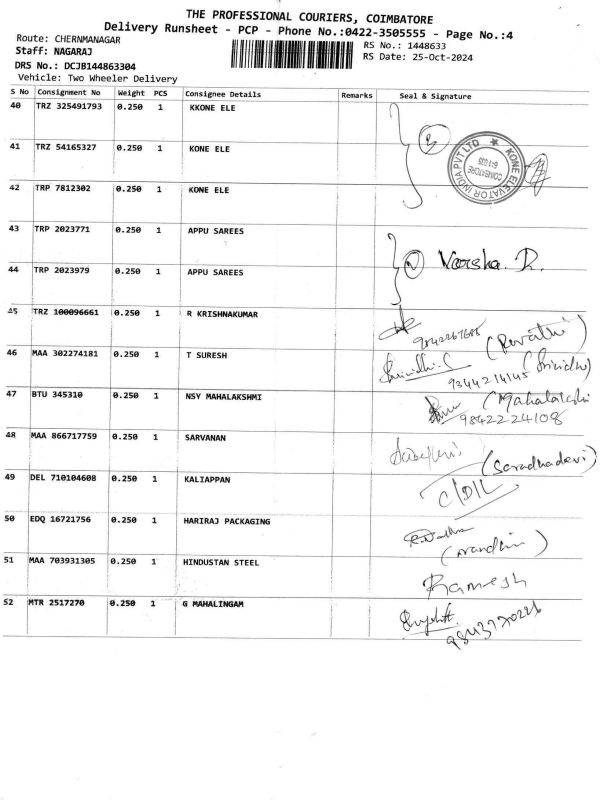 THE PROFESSIONAL COURIERS, COIMBATORE
Delivery Runsheet - PCP - Phone No.:0422-3505555 - Page No.:4
Route: CHERNMANAGAR
RS No.: 1448633
Staff: NAGARAJ
RS Date: 25-Oct-2024
DRS No.: DCJB144863304
Vehicle: Two Wheeler Delivery
S No Consignment No Weight PCS Consignee Details Remarks Seal & Signature
40 TRZ 325491793 0.250 1 KKONE ELE
41 TRZ 54165327 0.250 1 KONE ELE
KONE ELEVATOR INDIA PVT LTD
COIMBATORE
42 TRP 7812302 0.250 1 KONE ELE
43 TRP 2023771 0.250 1 APPU SAREES
Varsha. R.
44 TRP 2023979 0.250 1 APPU SAREES
45 TRZ 100096661 0.250 1 R KRISHNAKUMAR
(Revathi)
46 MAA 302274181 0.250 1 T SURESH
Srinidhi.S (Srinidhi)
9344214145
47 BTU 345310 0.250 1 NSY MAHALAKSHMI
(Mahalakshmi
9842224108
48 MAA 866717759 0.250 1 SARVANAN
(Saradhadevi)
49 DEL 710104608 0.250 1 KALIAPPAN
50 EDQ 16721756 0.250 1 HARIRAJ PACKAGING
(nandhini)
51 MAA 703931305 0.250 1 HINDUSTAN STEEL
Ramesh
52 MTR 2517270 0.250 1 G MAHALINGAM
9843770226